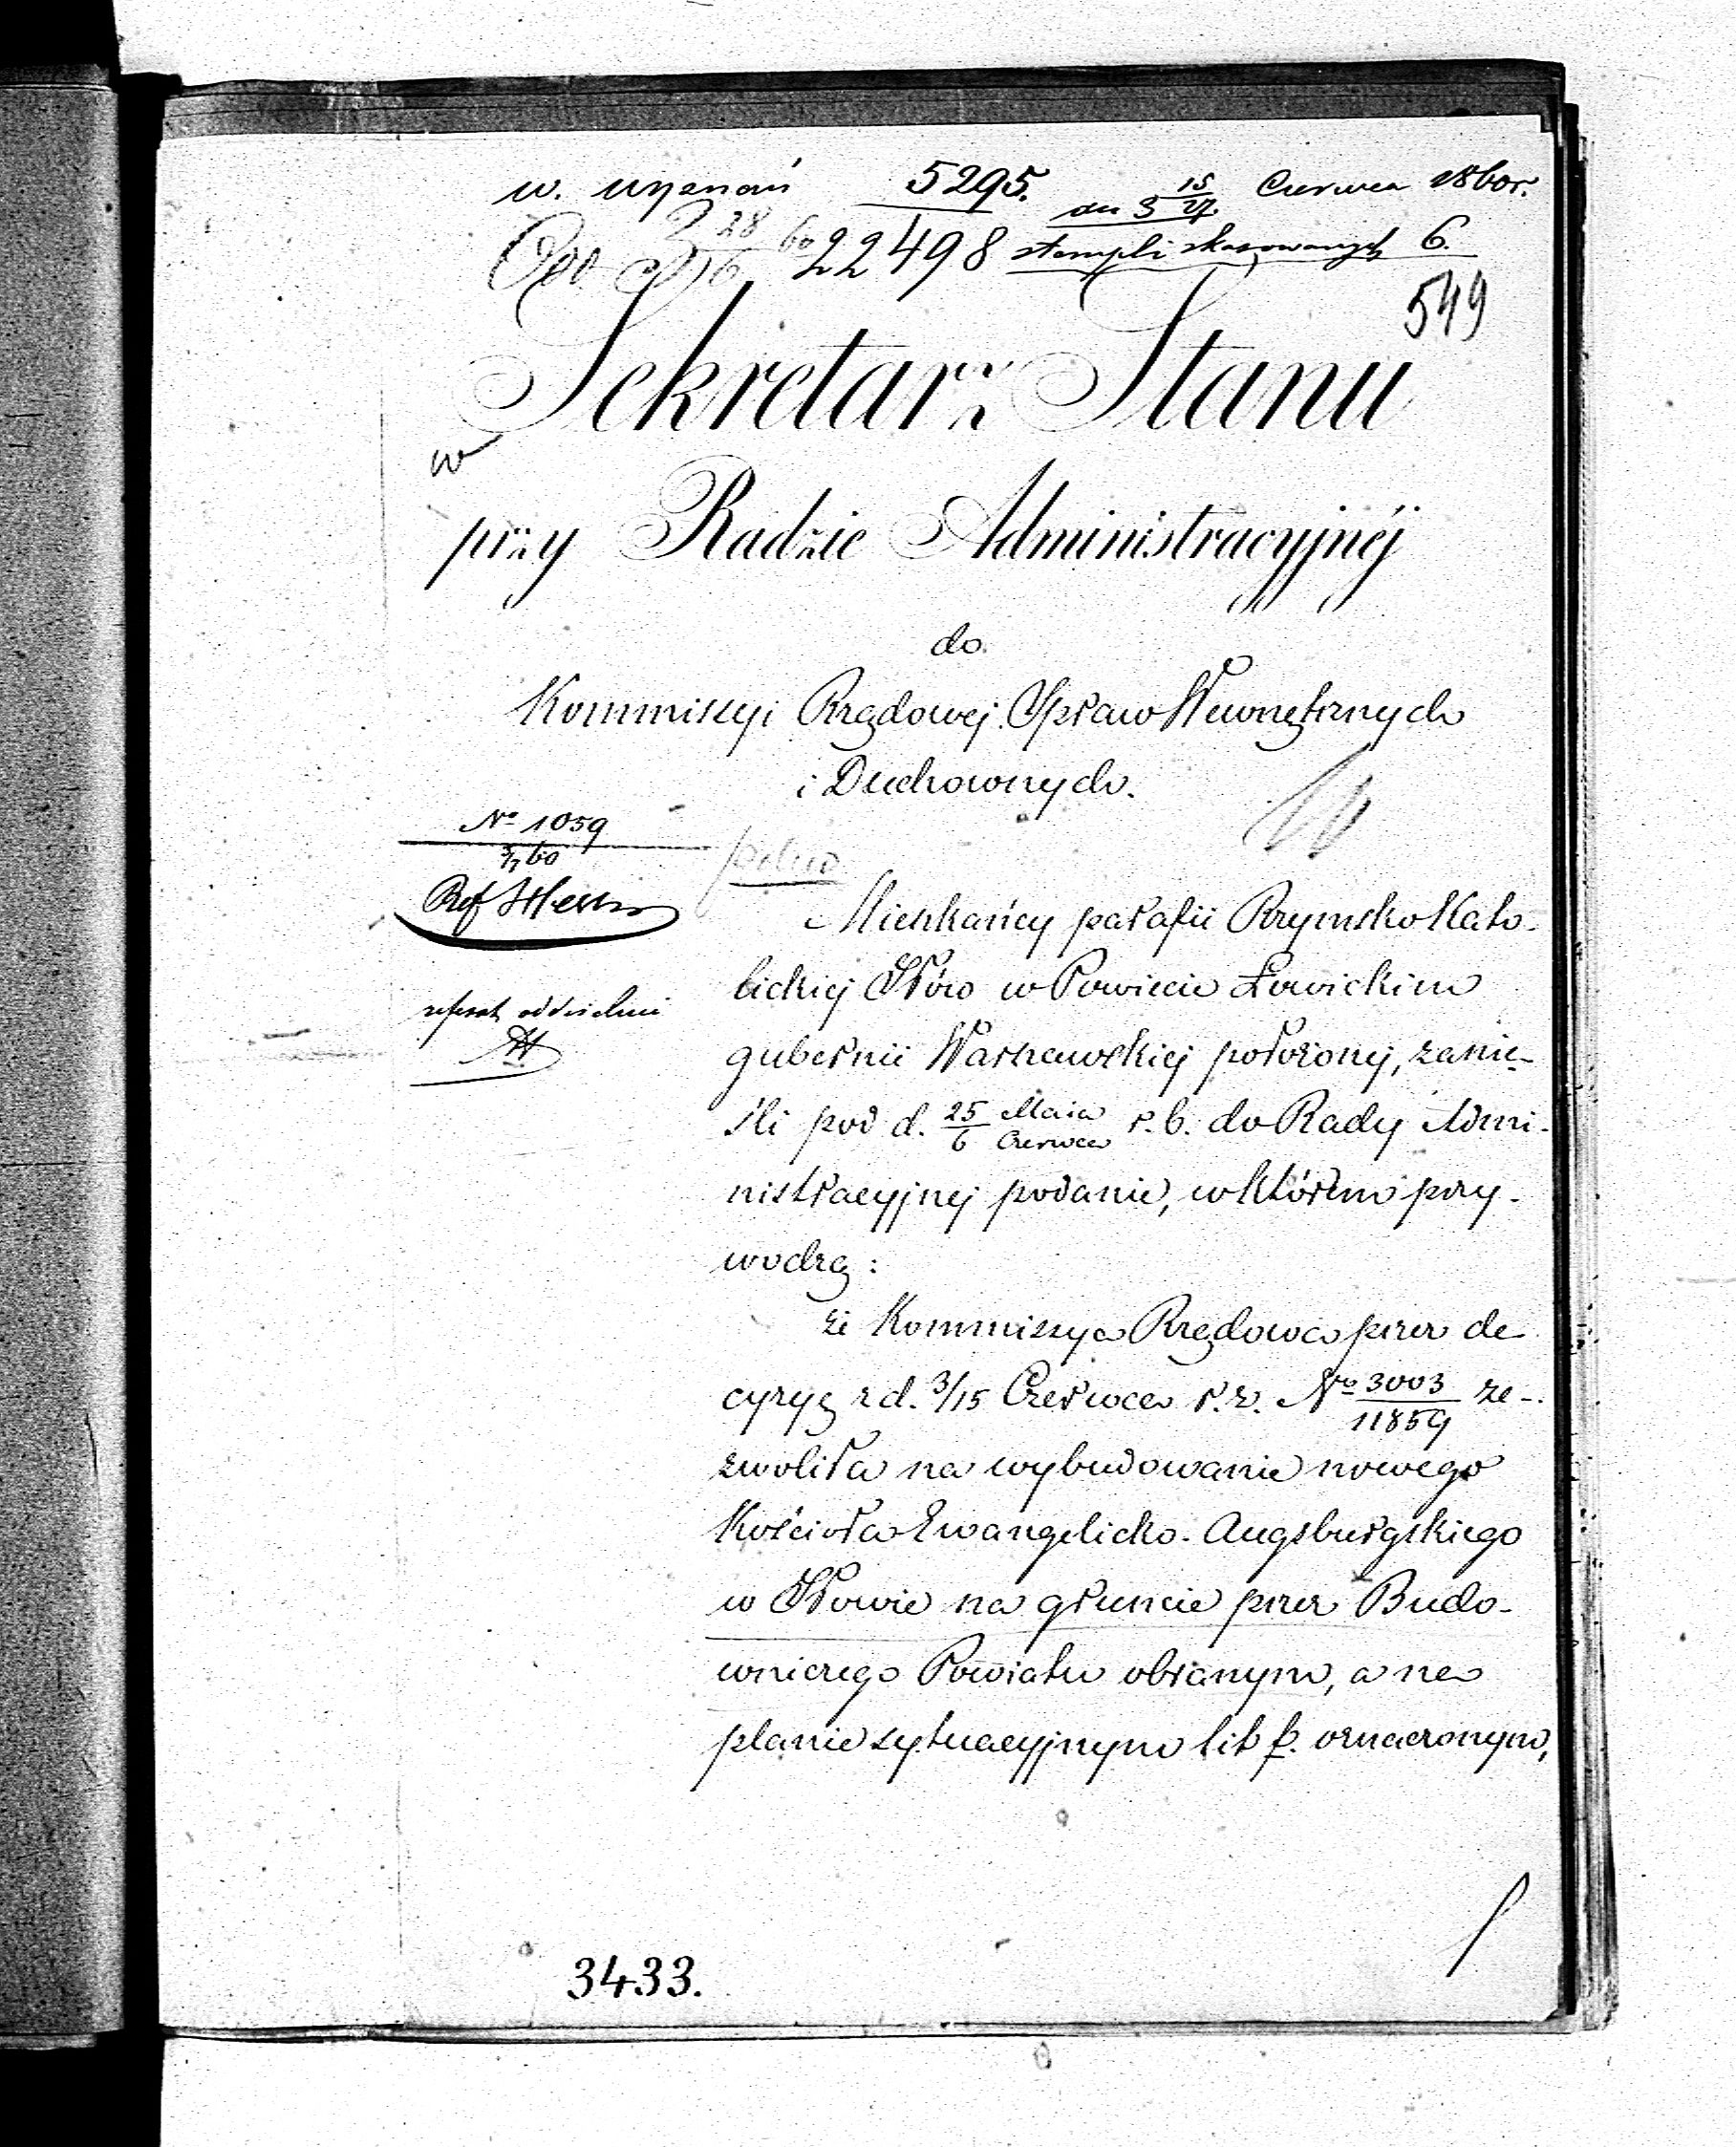 w. wyznań 5295. dn 3 15/27 Czerwca 1860r.
28/6 60 22498 stempli skasowanych 6.
549
Sekretarz Stanu
w
przy Radzie Administracyjnéj
do
Kommissyi Rządowej Spraw Wewnętrznych
i Duchownych.
No 1059
3/7 60
Ref
pilno
referat oddzielnie
Mieszkańcy parafii Rzymsko Kato-
lickiej Iłów w Powiecie Łowickim
gubernii Warszawskiej położonej, zanie-
śli pod d. 25 Maja/6 Czerwca r. b. do Rady Admi-
nistracyjnej podanie, w którém przy-
wodzą:
że Kommissya Rządowa przez de
cyzyę z d. 3/15 Czerwca r. z. No 3003/11859 ze-
zwoliła na wybudowanie nowego
Kościoła Ewangelicko-Augsburgskiego
w Iłowie na gruncie przez Budo-
wniczego Powiatu obranym, a na
planie sytuacyjnym lit f. oznaczonym,
3433.